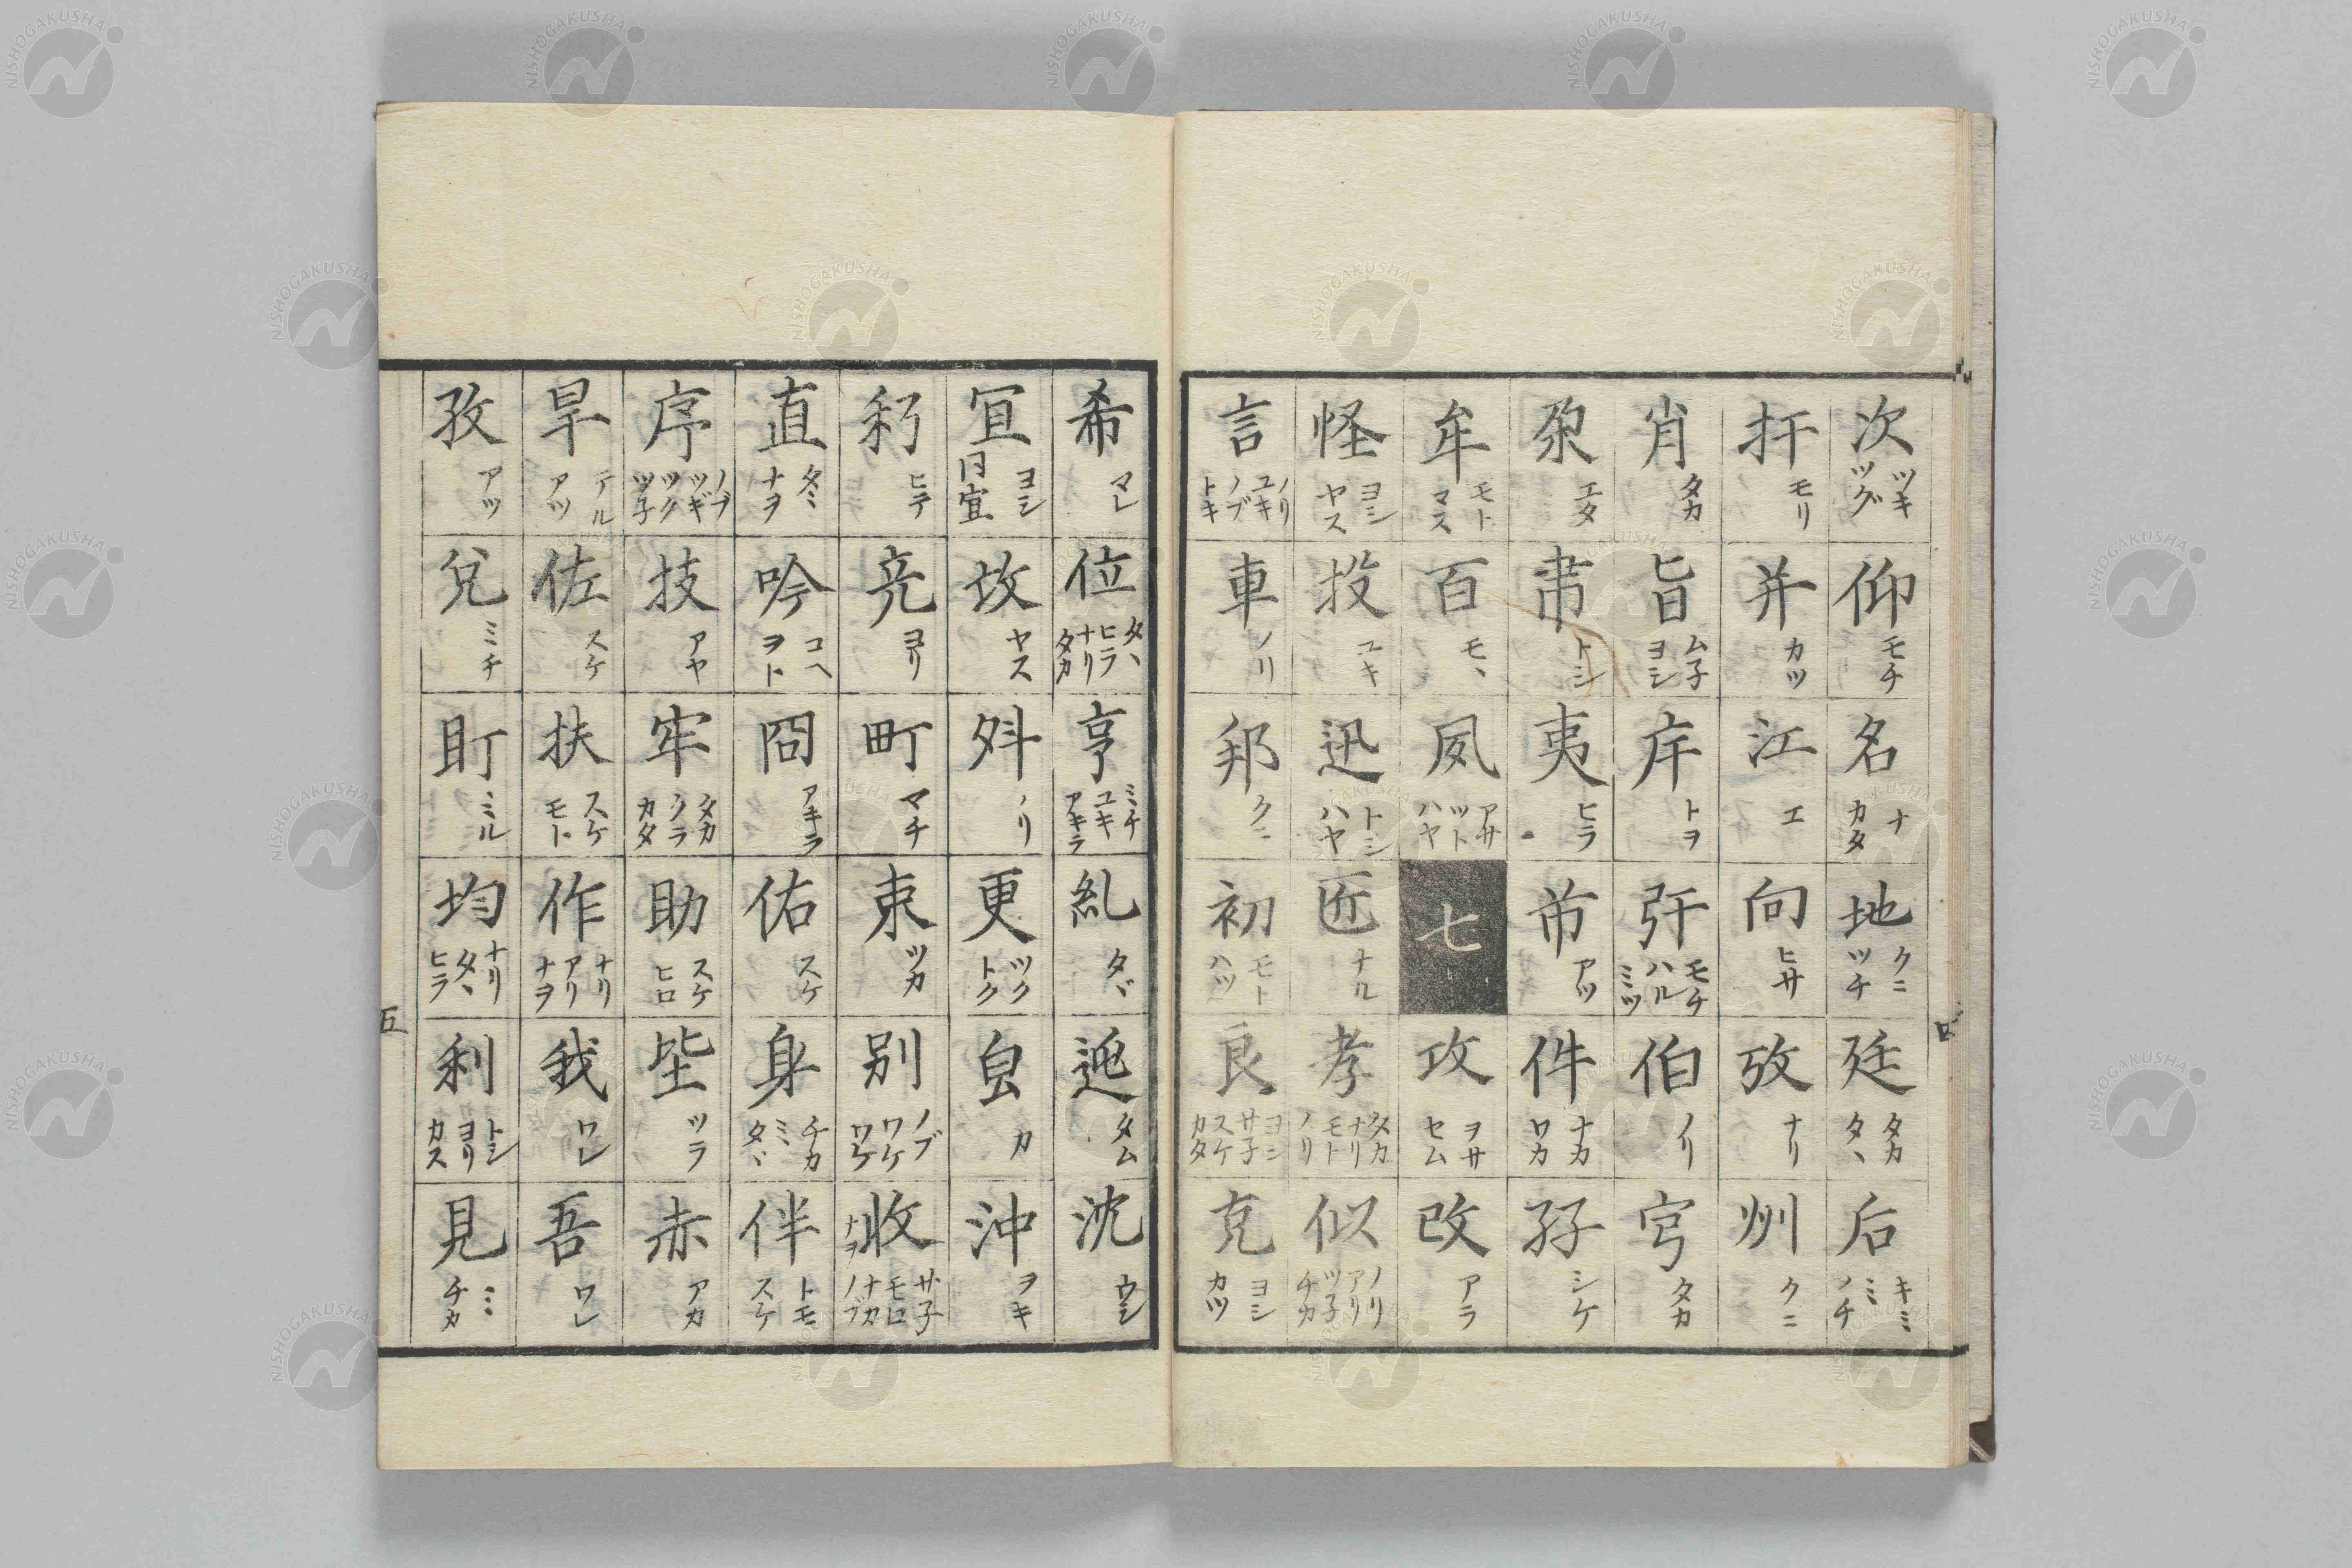 次 ツキ ツグ
仰 モチ
名 ナ カタ
地 クニ ツチ
廷 タカ タヽ
后 キミ ミ ノチ
扞 モリ
并 カツ
江 エ
向 ヒサ
攷 ナリ
州 クニ
肖 タカ
旨 ムネ ヨシ
庄 トヲ
弙 モチ ハル ミツ
伯 ノリ
穹 タカ
朶 エタ
トシ
夷 ヒラ
芾 アツ
件 ナカ ワカ
孖 シケ
牟 モト マス
百 モヽ
夙 アサ ツト ハヤ
七
攻 ヲサ セム
改 アラ
怪 ヨシ ヤス
投 ユキ
迅 トシ ハヤ
匠 ナル
孝 タカ ナリ モト ノリ
似 ノリ アリ ツ子 チカ
言 ノリ ユキ ノブ トキ
車 ノリ
邦 クニ
初 モト ハツ
良 ヨシ サ子 スケ カタ
克 ヨシ カツ
希 マレ
位 タヽ ヒラ ナリ タカ
亨 ミチ ユキ アキラ
乱 タヾ
延 タム
沈 ウシ
宜 ヨシ 同宜
坟 ヤス
斘 ノリ
更 ツク トク
皃 カ
沖 ヲキ
利 ヒテ
亮 ヨリ
町 マチ
束 ツカ
別 ノブ ワケ ワケ
收 サ子 モロ ナカ ノブ ナヲ
直 タヾ ナヲ
吟 コヘ ヲト
冏 アキラ
佑 スケ
身 チカ ミ タヾ
伴 トモ スケ
序 ノブ ツギ ツク ツ子
技 アヤ
牢 タカ ウラ カタ
助 スケ ヒロ
坒 ツラ
赤 アカ
旱 テル アツ
佐 スケ
扶 スケ モト
作 ナリ アリ ナヲ
我 ワレ
吾 ワレ
孜 アツ
兌 ミチ
盯 ミル
均 ナリ タヽ ヒラ
利 トシ ヨリ カス
見 ミ チカ
五